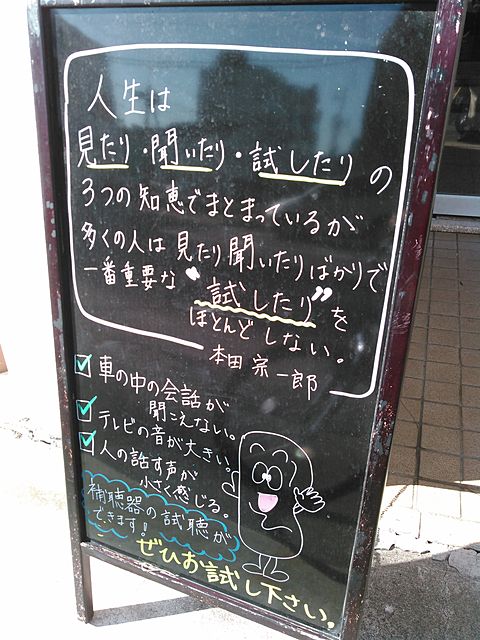 人生は
見たり・聞いたり・試したりの
3つの知恵でまとまっているが
多くの人は見たり聞いたりばかりで
一番重要な“試したり”を
ほとんどしない。
本田宗一郎
車の中の会話が
聞こえない。
テレビの音が大きい。
人の話す声が
小さく感じる。
補聴器の試聴が
できます!
ぜひお試し下さい。